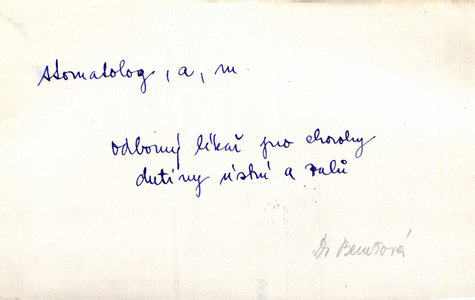 stomatolog, a, m.
odborný lékař pro choroby
dutiny ústní a zubů
Dr Benešová